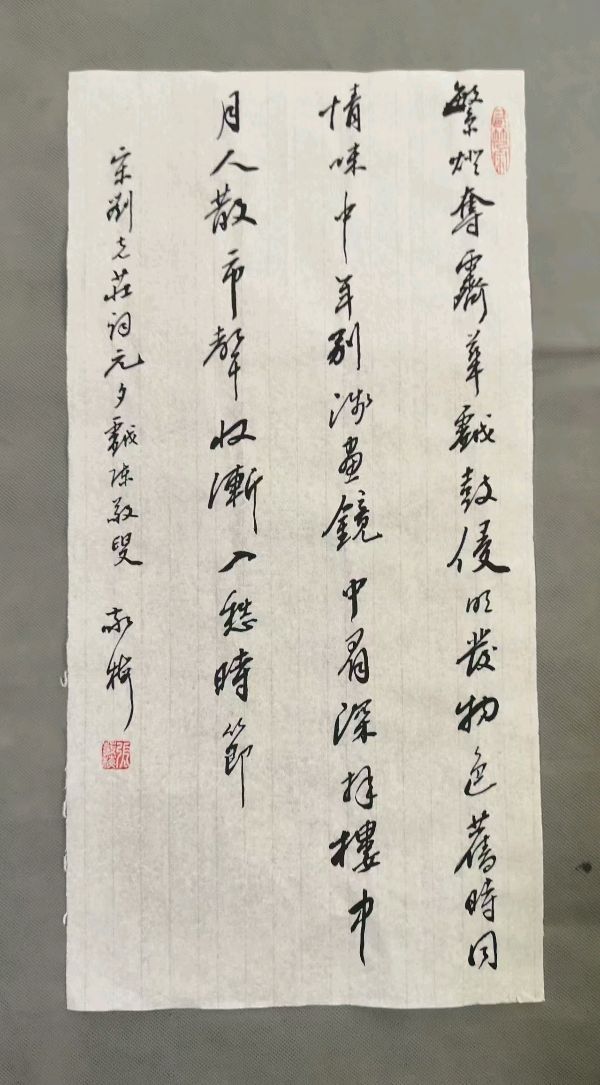 繁燈奪霽華戲鼓侵明發物色舊時同
情味中年別淺畫鏡中眉深拜樓中
月人散市聲收漸入愁時節
宋劉克莊詞元夕戲陳敬叟